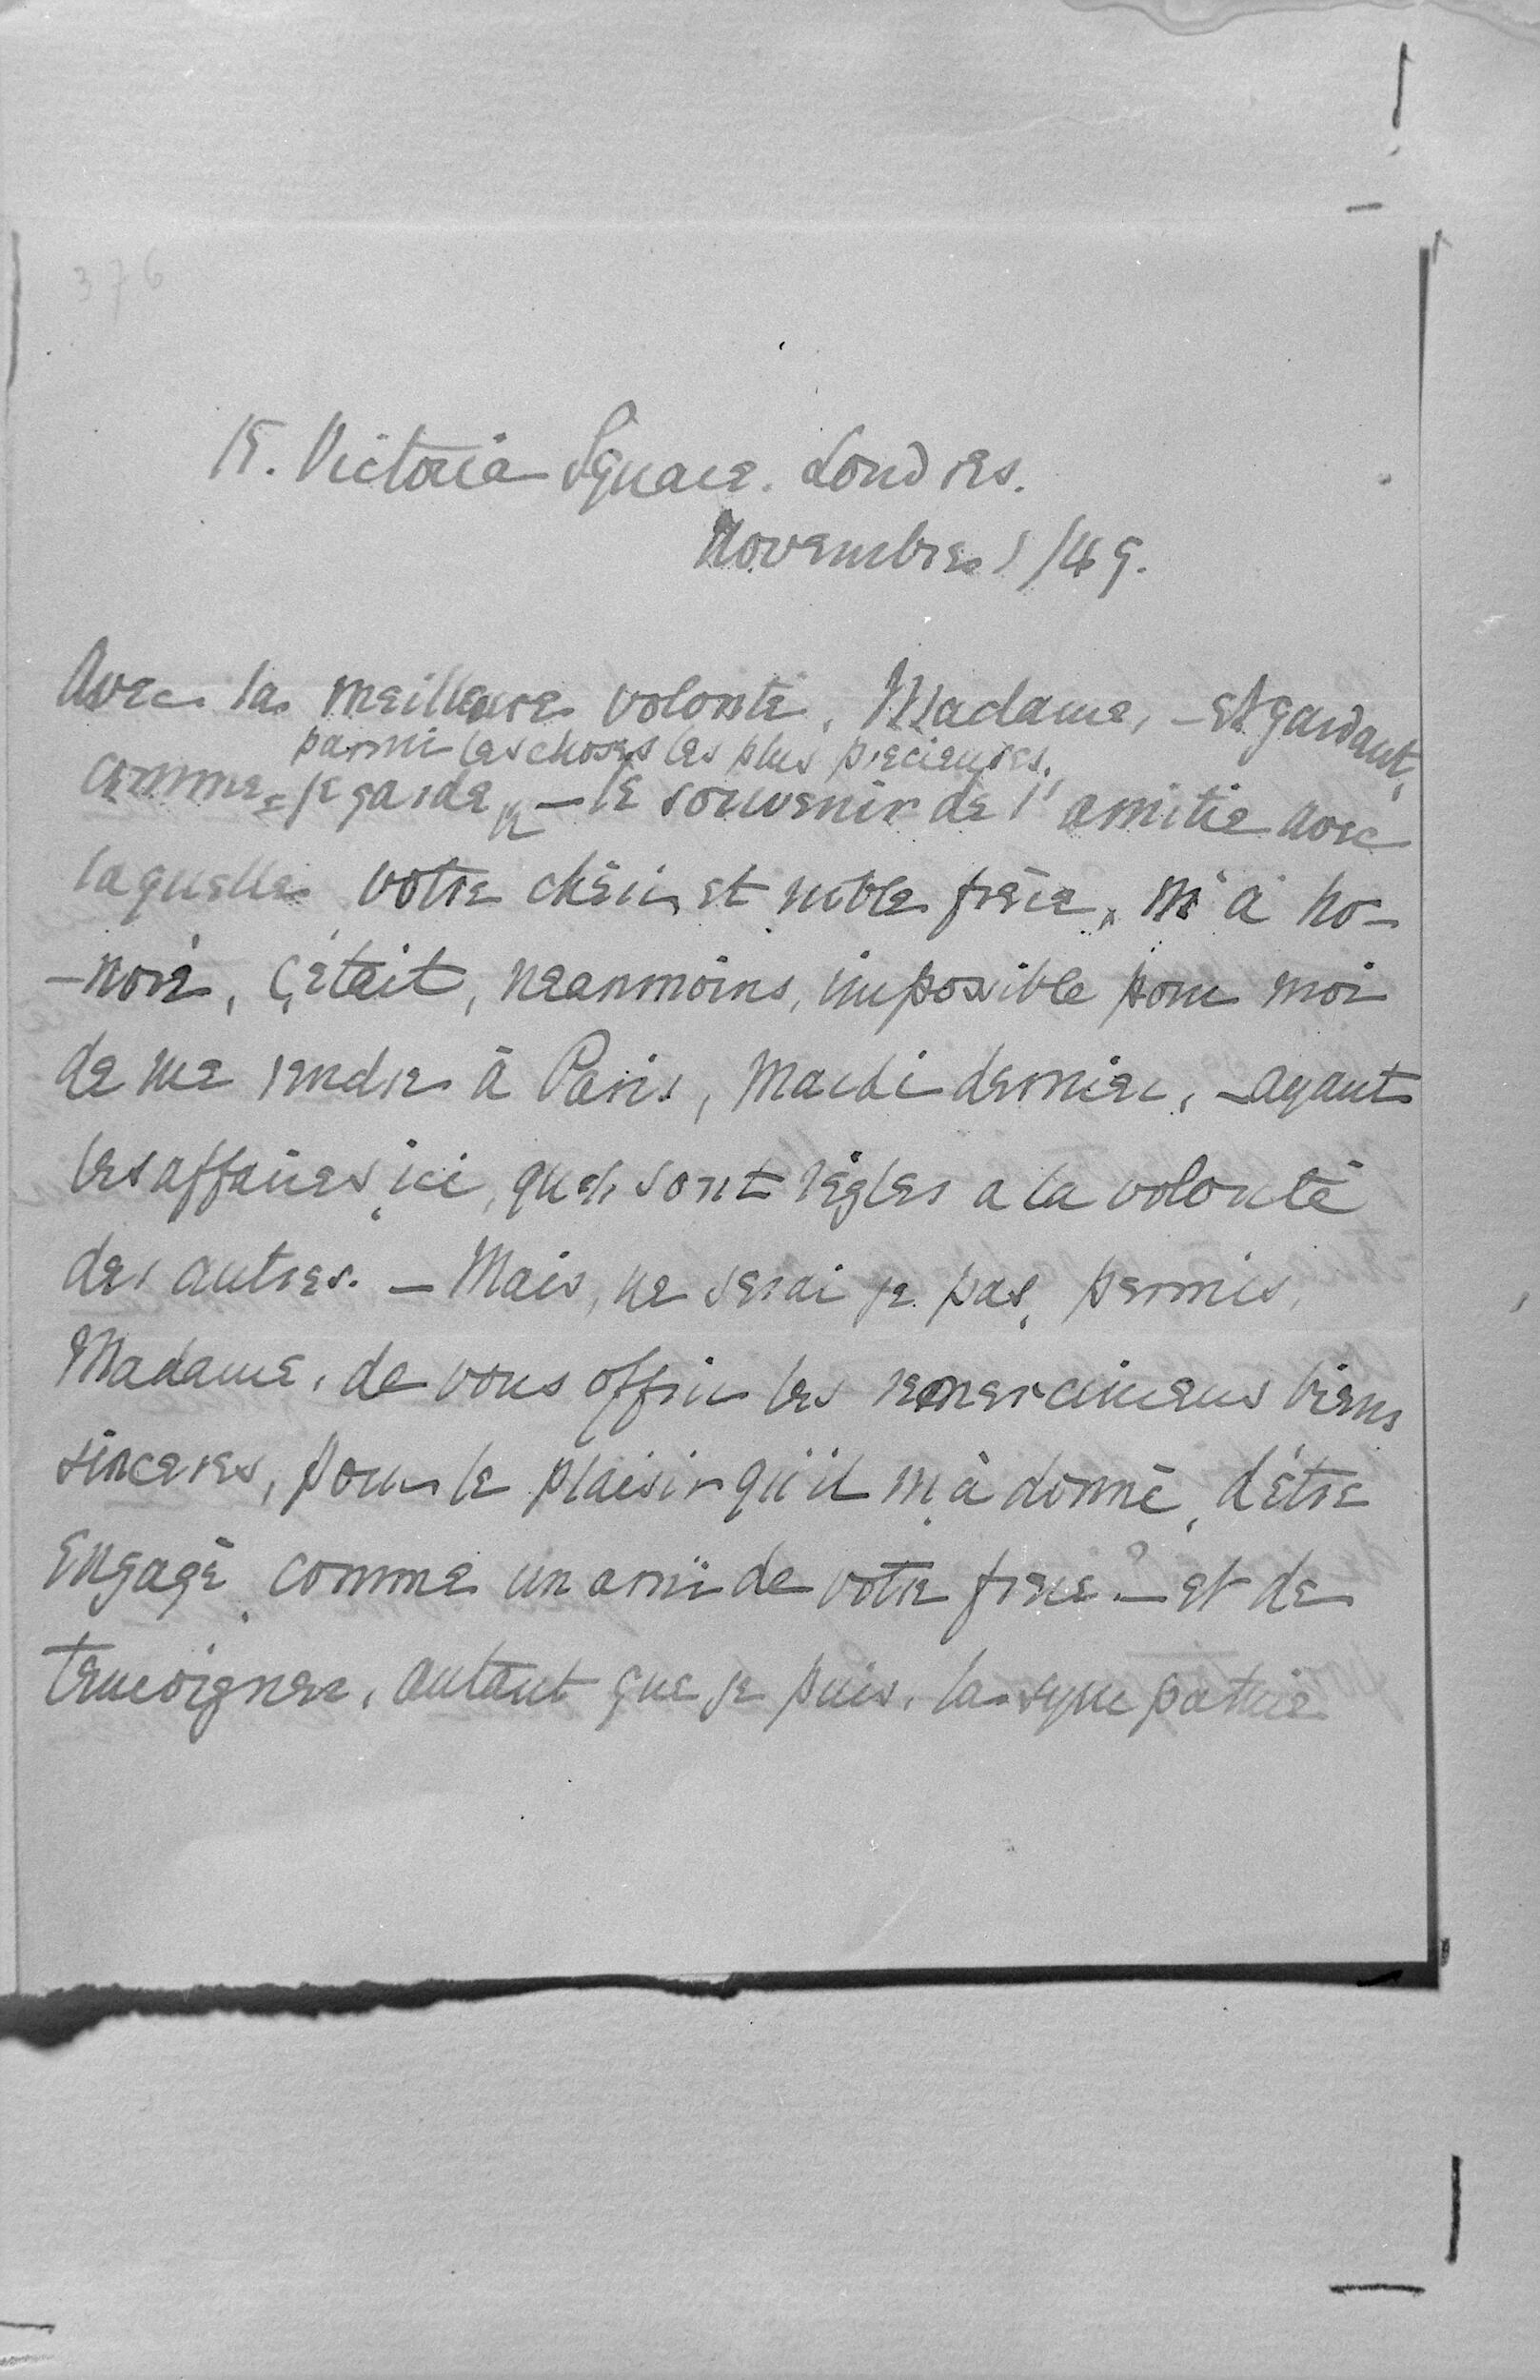 376
15. Victoria Square. Londres.
Novembre 1/49.
Avec la meilleure volonté, Madame, – et gardant,
parmi les choses les plus precieuses,
comme je garde – le souvenir de l'amitie avec
laquelle votre chèr et noble frère, m'à ho-
-noré, c'ètait, neanmoins, impossible pour moi
de me rendre à Paris, Mardi dernier, – ayant
les affaires ici, qui sont règles a la volonté
des autres. – Mais, ne serai je pas, permis,
Madame, de vous offrir les remercimens biens
sinceres, pour le plaisir qu'il m'à donné, d'étre
engagé comme un ami de votre frere? – et de
temoigner, autant que je puis, la sympathie